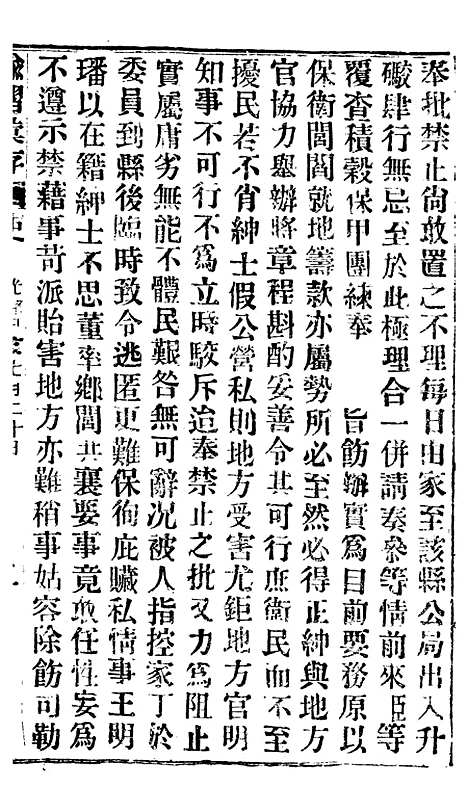 奉批禁止尙敢置之不理每日由家至該縣公局出入升
礮肆行無忌至於此極理合一併請奏參等情前來臣等
覆查積穀保甲團練奉　旨飭辦實爲目前要務原以
保衛閭閻就地籌款亦屬勢所必至然必得正紳與地方
官協力舉辦將章程斟酌妥善令其可行庶衛民而不至
擾民若不肖紳士假公營私則地方受害尤鉅地方官明
知事不可行不爲立時駁斥迨奉禁止之批又力爲阻止
實屬庸劣無能不體民艱咎無可辭况被人指控家丁於
委員到縣後臨時致令逃匿更難保徇庇贓私情事王明
璠以在籍紳士不思董率鄉閭共襄要事竟敢任性妄爲
不遵示禁藉事苛派貽害地方亦難稍事姑容除飭司勒
諭摺彙存
七月二十日